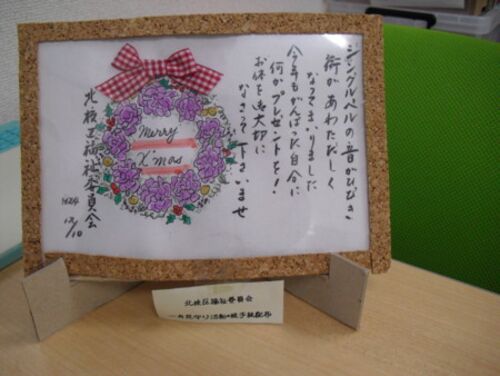 ジングルベルの音がひびき
街があわただしく
なってまいりました
今年もがんばった自分に
何かプレゼントを!
お体を大切に
なさって下さいませ
Merry
X'mas
北校区福祉委員会
H24
12/10
北校区福祉委員会